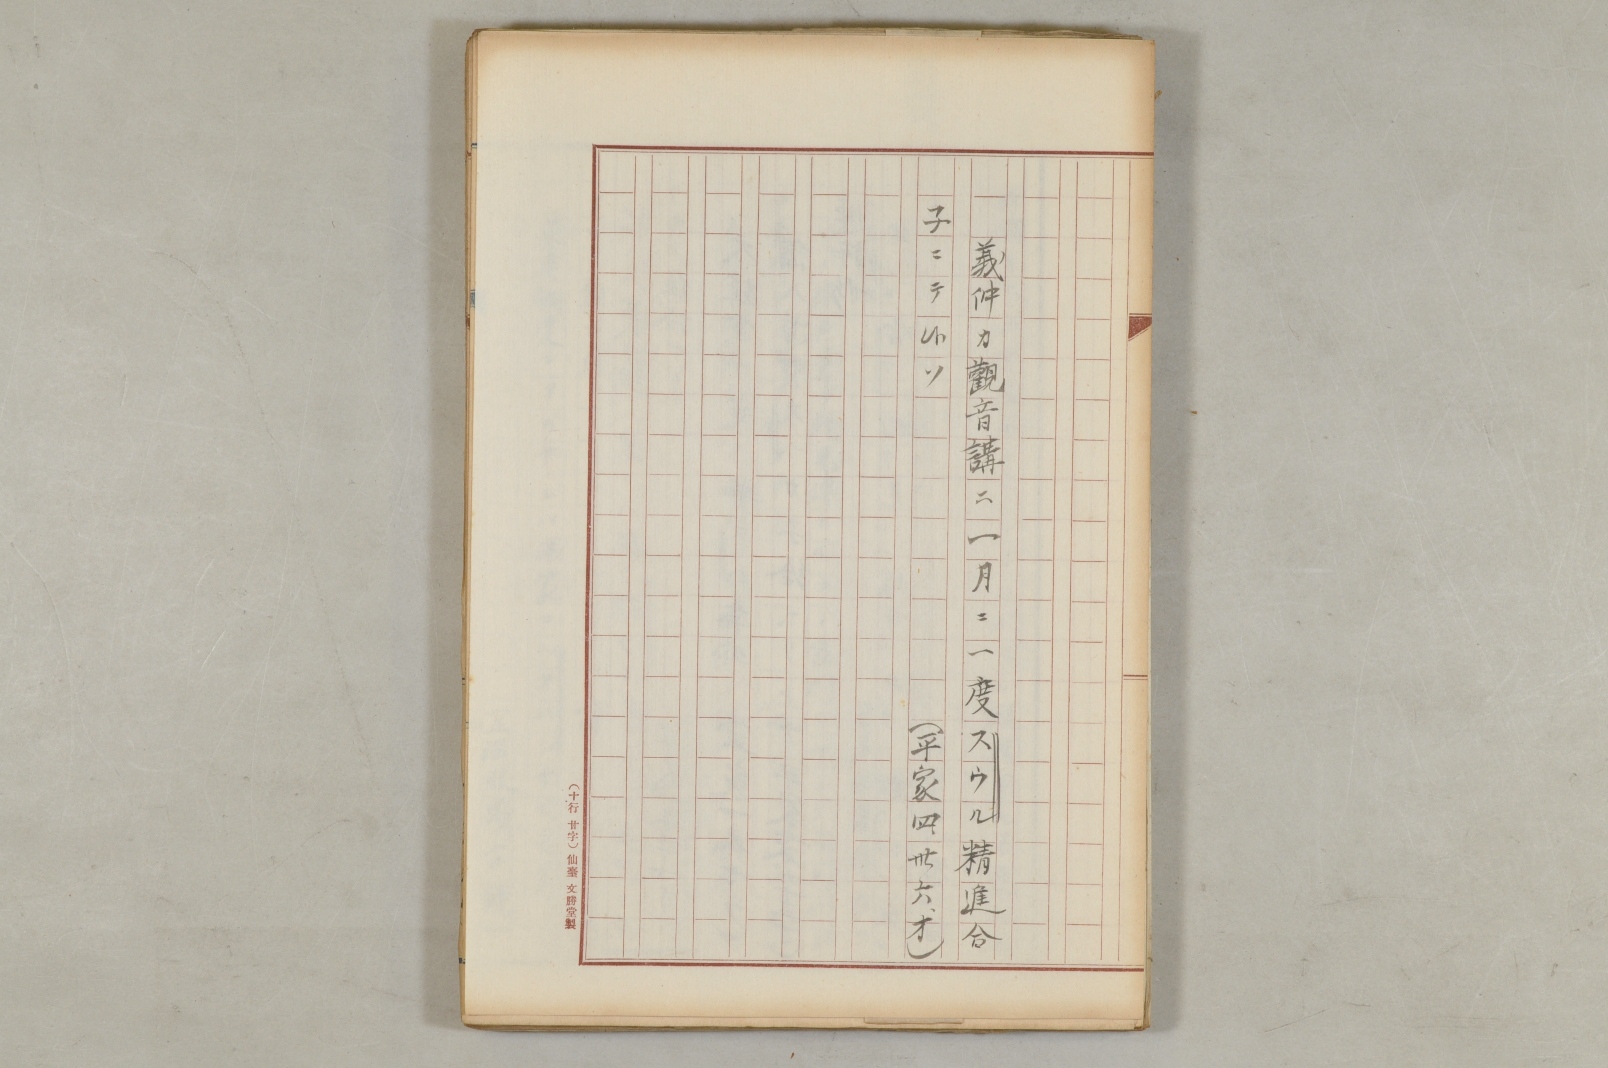 義仲カ觀音講ニ一月ニ一度スウル精進合
子ニテ候ソ
(平家四、卅六、オ)
(十行廿字)仙臺文勝堂製